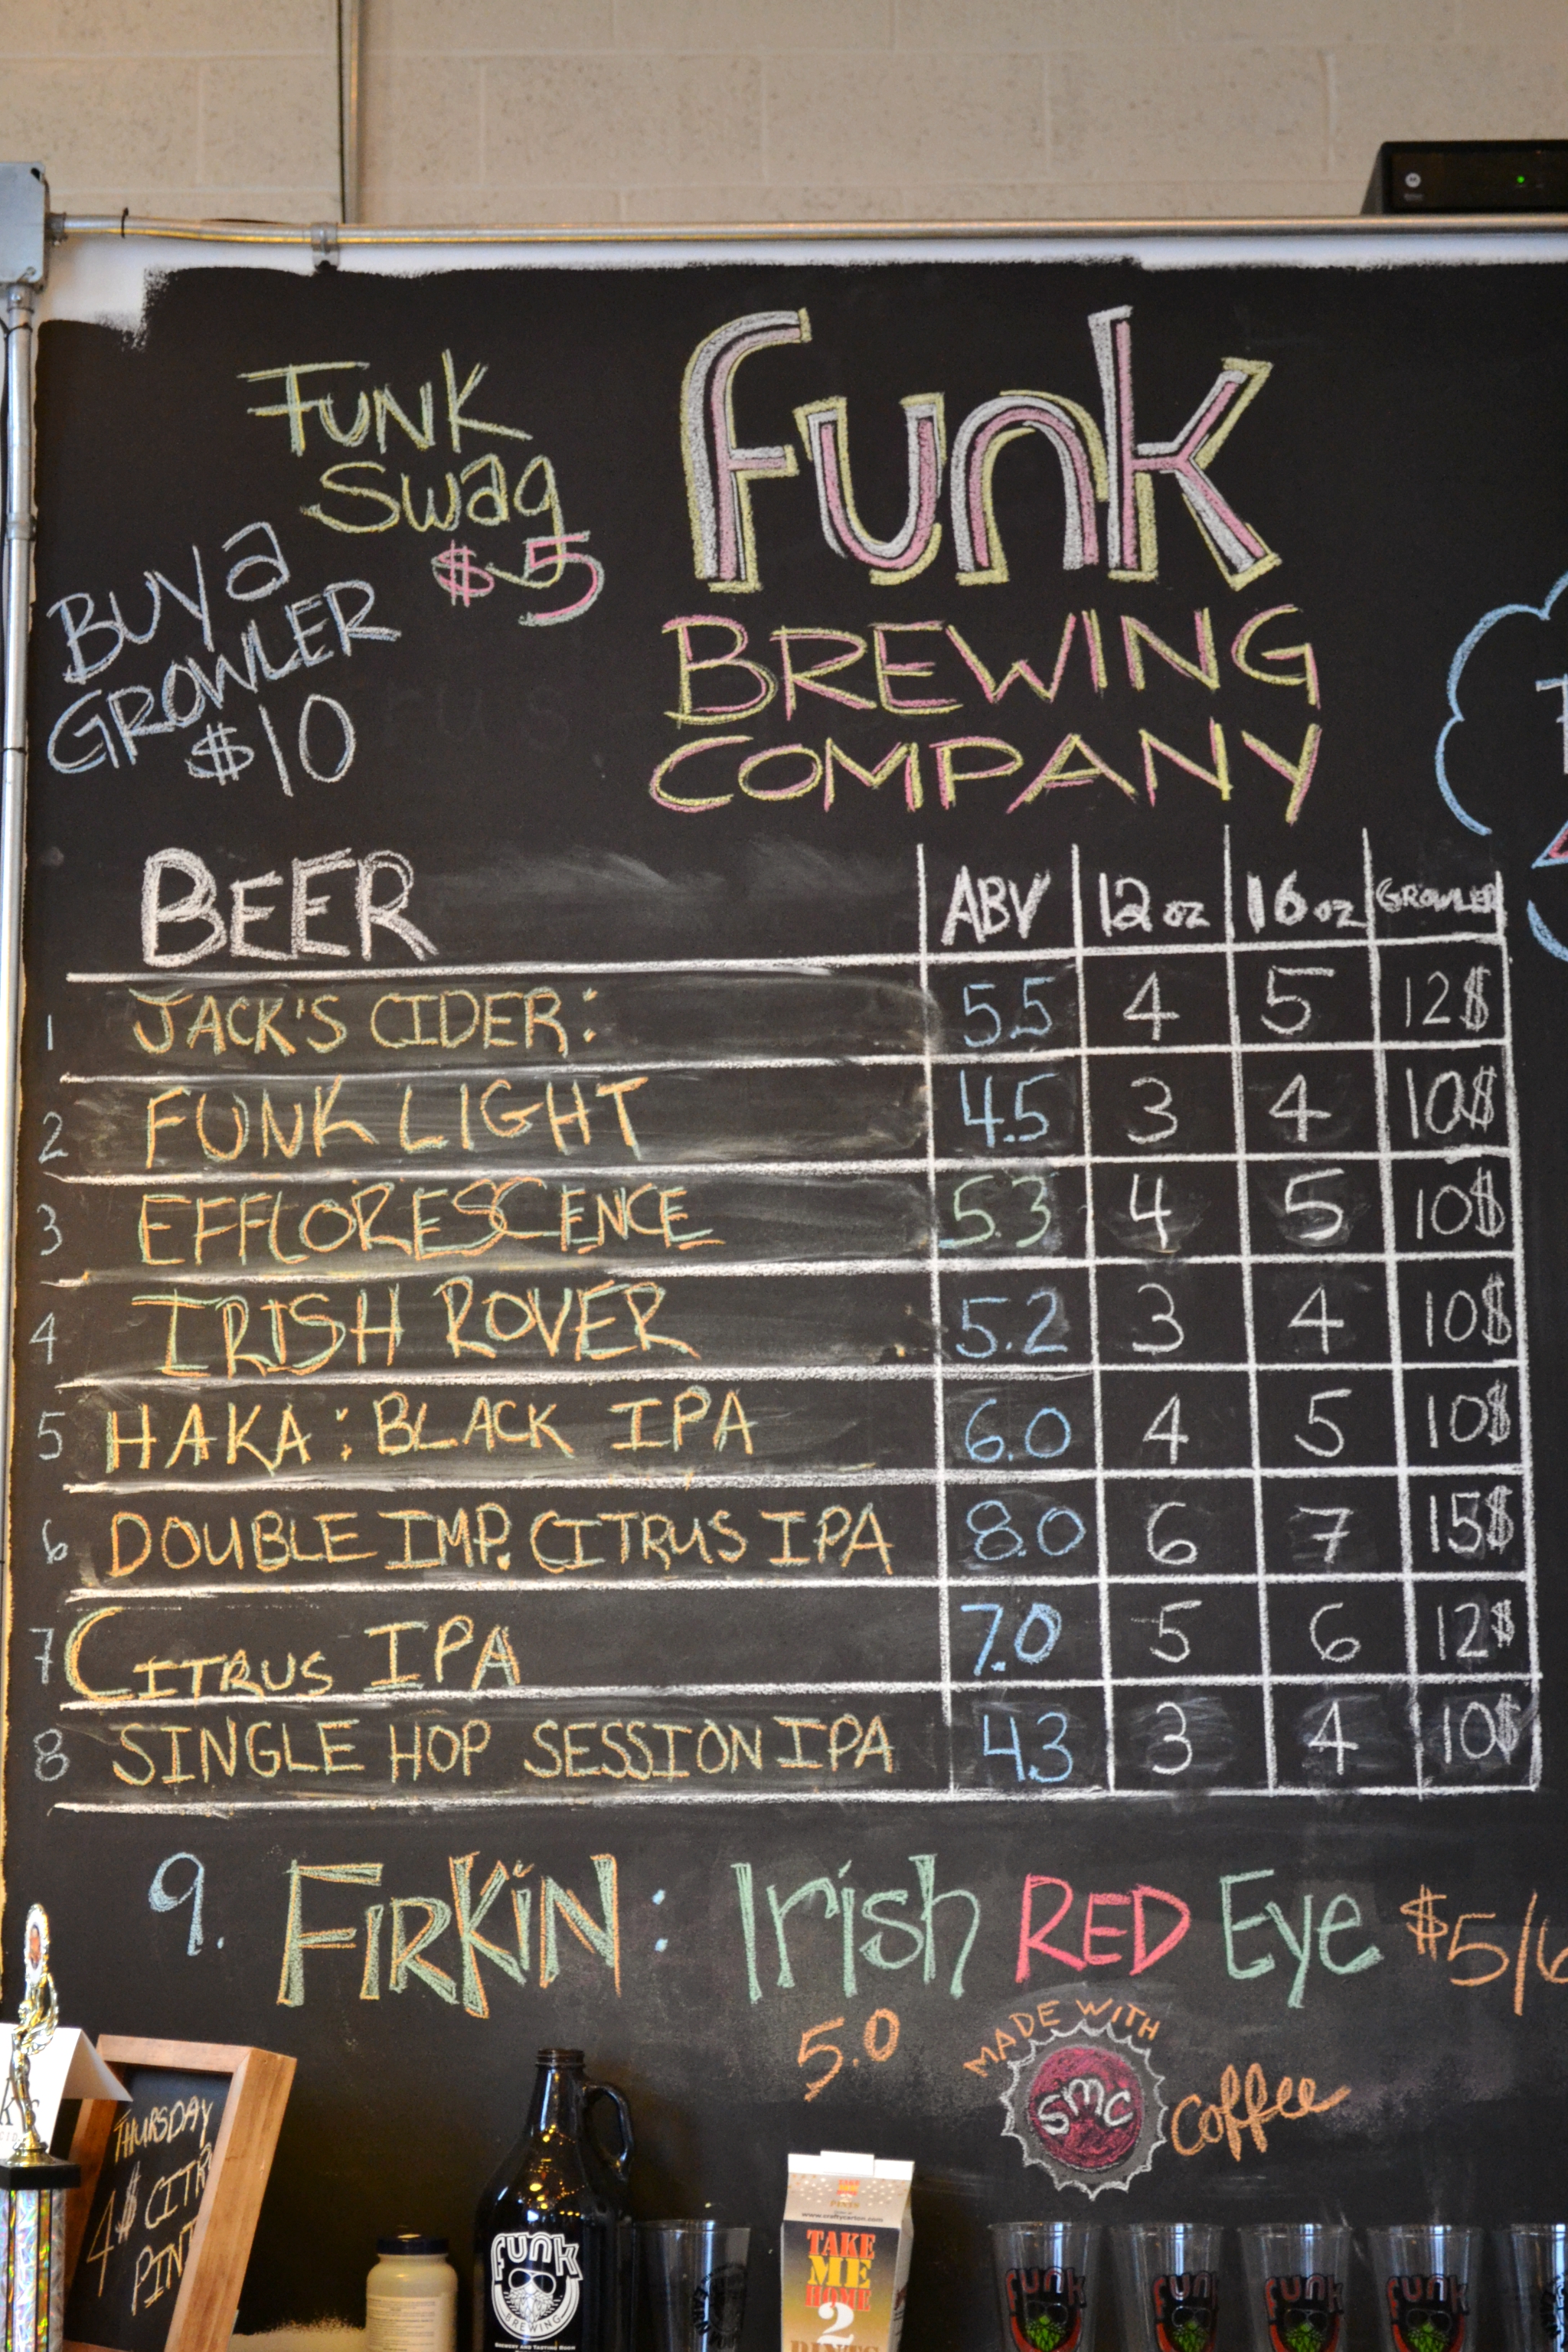 FUNK
SWAG
$5
BUY A
GROWLER
$10
FUNK
BREWING
COMPANY
BEER ABV 12oz 16oz GROWLER
1 JACK'S CIDER: 5.5 4 5 12$
2 FUNK LIGHT 4.5 3 4 10$
3 EFFLORESCENCE 5.3 4 5 10$
4 IRISH ROVER 5.2 3 4 10$
5 HAKA: BLACK IPA 6.0 4 5 10$
6 DOUBLE IMP. CITRUS IPA 8.0 6 7 15$
7 CITRUS IPA 7.0 5 6 12$
8 SINGLE HOP SESSION IPA 4.3 3 4 10$
9. FIRKIN: Irish RED Eye $5/6
5.0
MADE WITH
SMC Coffee
THURSDAY
4$ CITR
PINT
FUNK
BREWING
BREWERY AND TASTING ROOM
PINTS
www.craftycarton.com
TAKE
ME
HOME
2
PINTS
FUNK
FUNK
FUNK
FUNK